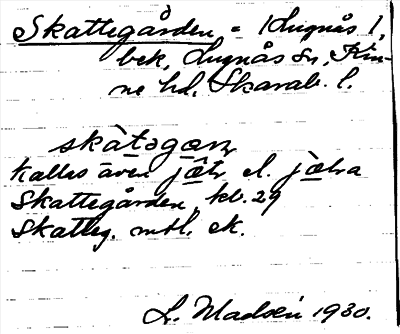 Skattegården = Hugnås 1,
bek, Lugnås sn, Kin-
ne hd, Skarab. l.
skàtəgan
kallas även jæ̂tr el. jæ̀tra
Skattegården, kb. 29
Skatteg. mtl. ek.
L. Madsén 1930.